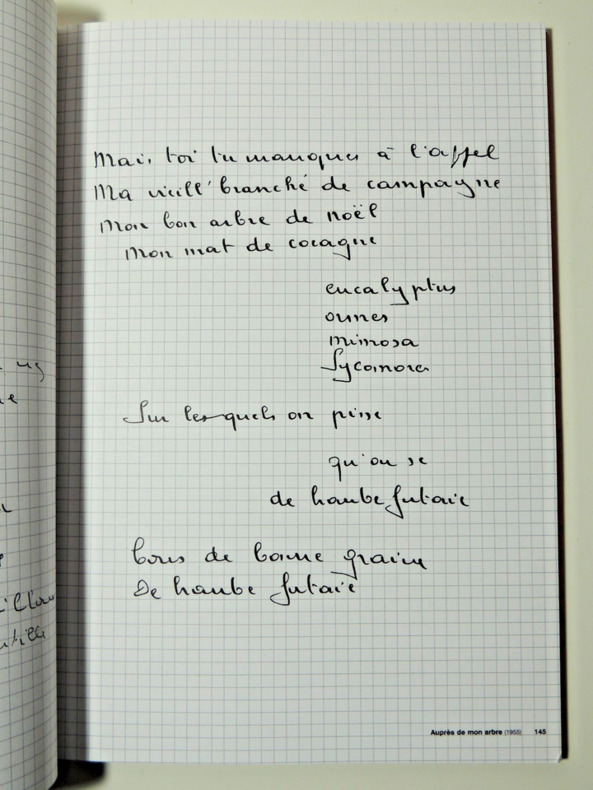 Mais toi tu manques à l'appel
Ma vieill' branche de campagne
Mon bon arbre de noël
Mon mat de cocagne
eucalyptus
ormes
mimosa
Sycomores
Sur lesquels on pisse
qu'on se
de haute futaie
tous de bonne graine
De haute futaie
Auprès de mon arbre (1955) 145